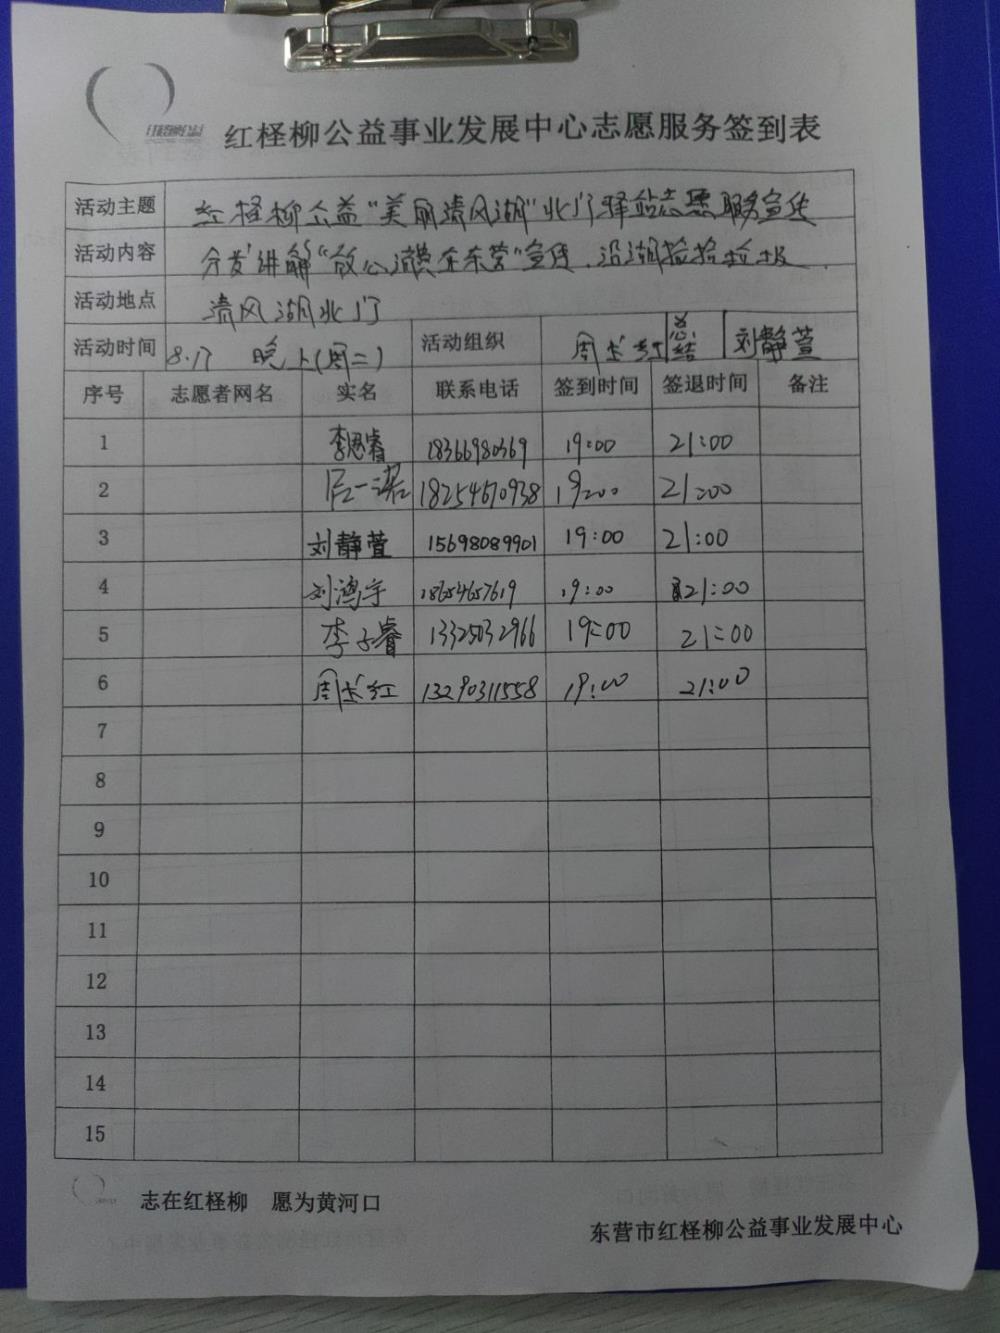 红柽柳公益事业发展中心志愿服务签到表
活动主题 红柽柳公益"美丽清风湖"北门驿站志愿服务宣传
活动内容 分发讲解"放心消费在东营"宣传、沿湖捡拾垃圾
活动地点 清风湖北门
活动时间 8.17 晚上(周二) 活动组织 周 红 总结 刘静萱
序号 志愿者网名 实名 联系电话 签到时间 签退时间 备注
1 李思睿 18366980369 19:00 21:00
2 一诺 18254670938 19:00 21:00
3 刘静萱 15698089901 19:00 21:00
4 刘鸿宇 18654657619 19:00 21:00
5 李子睿 13325032966 19:00 21:00
6 周 红 13290311558 19:00 21:00
7
8
9
10
11
12
13
14
15
志在红柽柳 愿为黄河口
东营市红柽柳公益事业发展中心